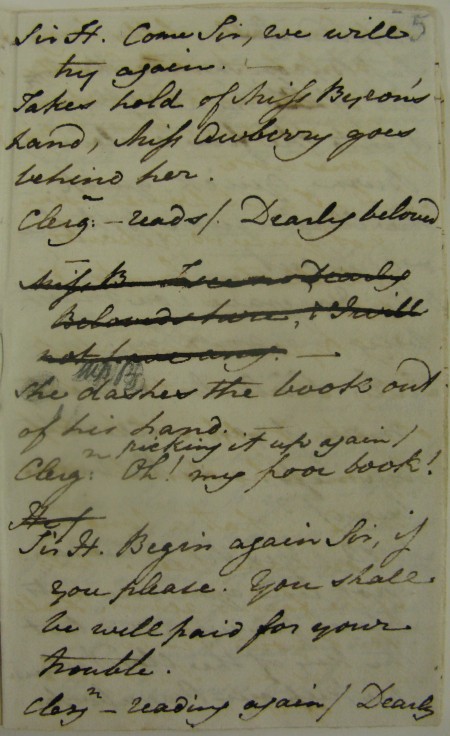 5
Sir H. Come Sir, we will
try again. —
Takes hold of Miss Byron's
hand, Miss Awberry goes
behind her.
Clergn: — reads/. Dearly beloved
Miss B — I see no Dearly
Beloveds here, & I will
not have any. —
Miss B
she dashes the book out
of his hand.
picking it up again/
Clergn: Oh! my poor book!
Sir H. Begin again Sir, if
you please. You shall
be will paid for your
trouble.
Clergn — reading again/ Dearly